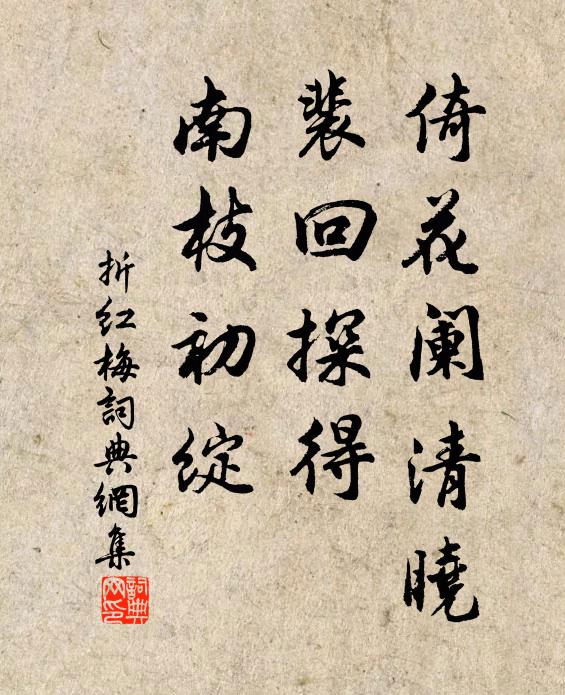 倚花阑清曉
裴回探得
南枝初綻
折红梅詞典網集
詞典网印